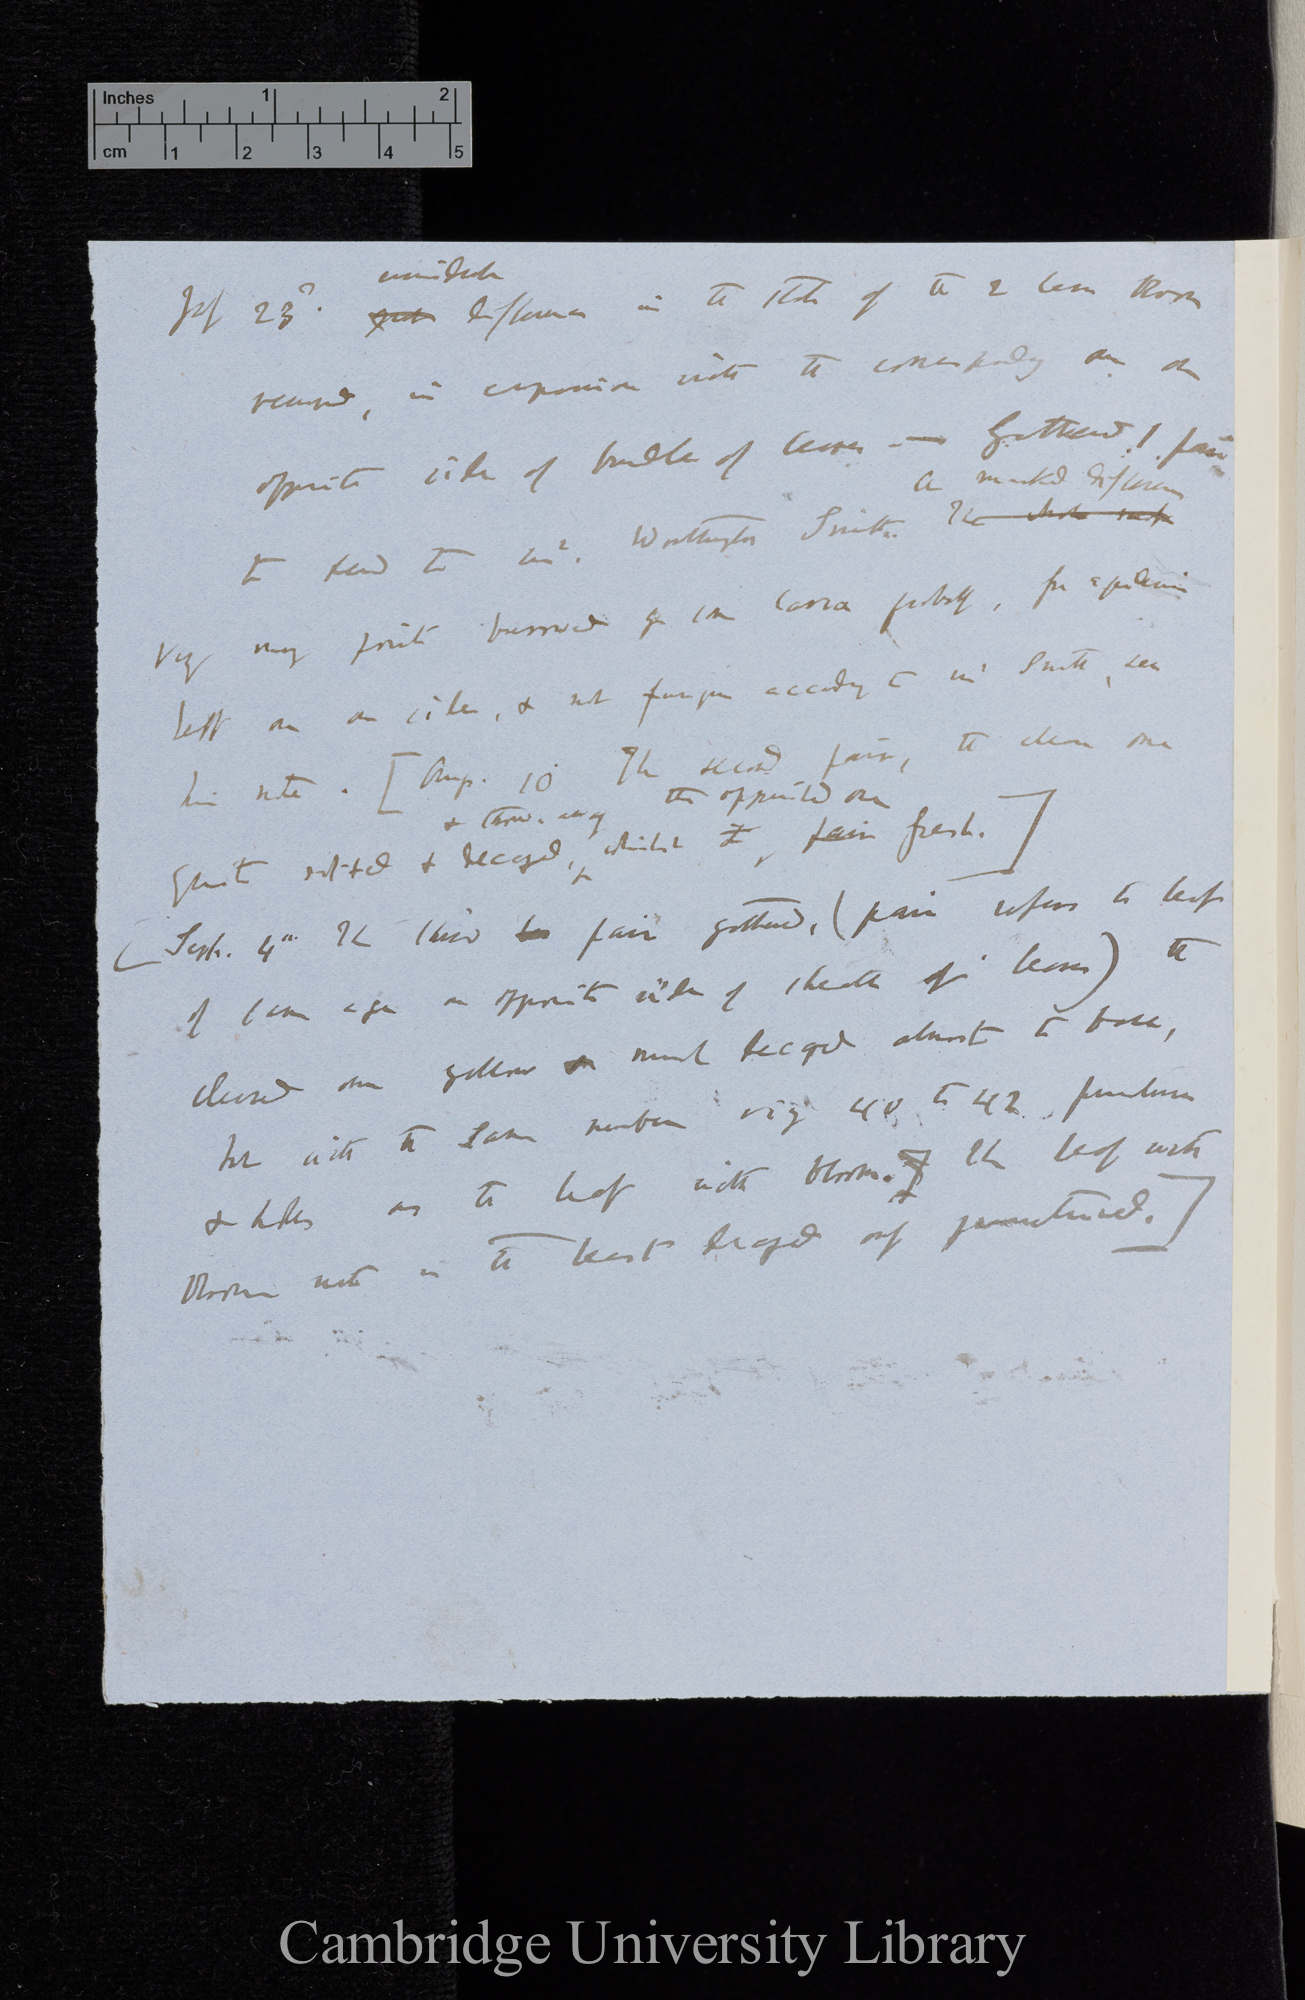 Inches 1 2
cm 1 2 3 4 5
July 23d. difference in the state of the 2 leaves bloom
removed, in comparison with the corresponding one on
opposite side of bundle of leaves — Gathered 1. pair
a marked difference
to send to Mr. Worthington Smith. The
Very many points burrowed by some larva probably, for epidermis
left on one side, & not fungus according to Mr Smith, see
his note. [Aug. 10 The second pair, the clean one
& thrown away the opposite one
quite rotted & decayed, whilst fresh.]
(Sept. 4th The third pair gathered, (pair refers to leaf
of same age on opposite side of sheath of leaves) the
cleaned one yellow much decayed almost to base,
but with the same number viz 40 to 42 punctures
& holes as the leaf with bloom. The leaf with
Bloom is the least decayed punctured.]
Cambridge University Library